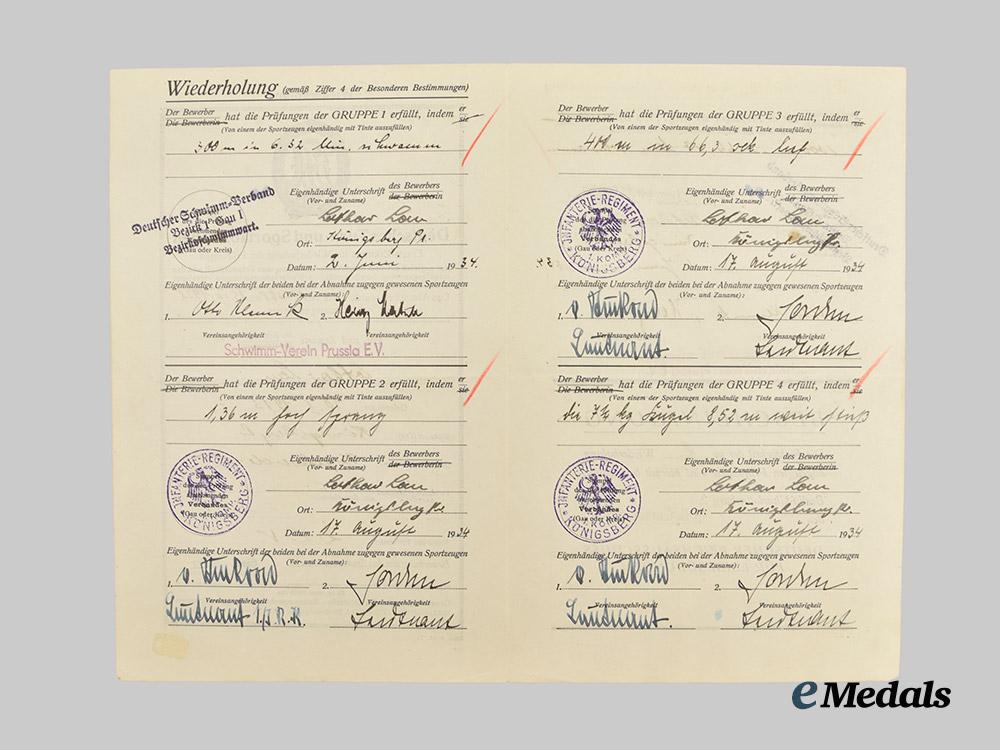 Wiederholung (gemäß Ziffer 4 der Besonderen Bestimmungen)
Der Bewerber
Die Bewerberin hat die Prüfungen der GRUPPE 1 erfüllt, indem er sie
(Von einem der Sportzeugen eigenhändig mit Tinte auszufüllen)
300 m in 6.52 Min. schwamm
Deutscher Schwimm-Verband
Bezirk 1 Gau I
Bezirksschwimmwart.
(Gau oder Kreis)
Eigenhändige Unterschrift des Bewerbers der Bewerberin
(Vor- und Zuname)
Lothar Lau
Ort: Königsberg Pr.
Datum: 2. Juni 1934.
Eigenhändige Unterschrift der beiden bei der Abnahme zugegen gewesenen Sportzeugen
(Vor- und Zuname):
1. Otto 2. Heinz
Vereinsangehörigkeit
Schwimm-Verein Prussia E.V.
Der Bewerber
Die Bewerberin hat die Prüfungen der GRUPPE 2 erfüllt, indem er sie
(Von einem der Sportzeugen eigenhändig mit Tinte auszufüllen)
1,36 m hoch sprang
INFANTERIE-REGIMENT
KÖNIGSBERG
Verbandes
(Gau oder Kreis)
Eigenhändige Unterschrift des Bewerbers der Bewerberin
(Vor- und Zuname)
Lothar Lau
Ort: Königsberg Pr.
Datum: 17. August 1934
Eigenhändige Unterschrift der beiden bei der Abnahme zugegen gewesenen Sportzeugen
(Vor- und Zuname):
1. v. 2.
Vereinsangehörigkeit
Leutnant 1./J.R. Leutnant
Der Bewerber
Die Bewerberin hat die Prüfungen der GRUPPE 3 erfüllt, indem er sie
(Von einem der Sportzeugen eigenhändig mit Tinte auszufüllen)
400 m in 66,3 sek lief
INFANTERIE-REGIMENT
KÖNIGSBERG
Verbandes
(Gau oder Kreis)
1. Komp.
Eigenhändige Unterschrift des Bewerbers der Bewerberin
(Vor- und Zuname)
Lothar Lau
Ort: Königsberg Pr.
Datum: 17. August 1934
Eigenhändige Unterschrift der beiden bei der Abnahme zugegen gewesenen Sportzeugen
(Vor- und Zuname):
1. v. 2.
Vereinsangehörigkeit
Leutnant Leutnant
Der Bewerber
Die Bewerberin hat die Prüfungen der GRUPPE 4 erfüllt, indem er sie
(Von einem der Sportzeugen eigenhändig mit Tinte auszufüllen)
die 7¼ kg Kugel 8,52 m weit stieß
INFANTERIE-REGIMENT
KÖNIGSBERG
Verbandes
(Gau oder Kreis)
Eigenhändige Unterschrift des Bewerbers der Bewerberin
(Vor- und Zuname)
Lothar Lau
Ort: Königsberg Pr.
Datum: 17. August 1934
Eigenhändige Unterschrift der beiden bei der Abnahme zugegen gewesenen Sportzeugen
(Vor- und Zuname):
1. v. 2.
Vereinsangehörigkeit
Leutnant. Leutnant
eMedals